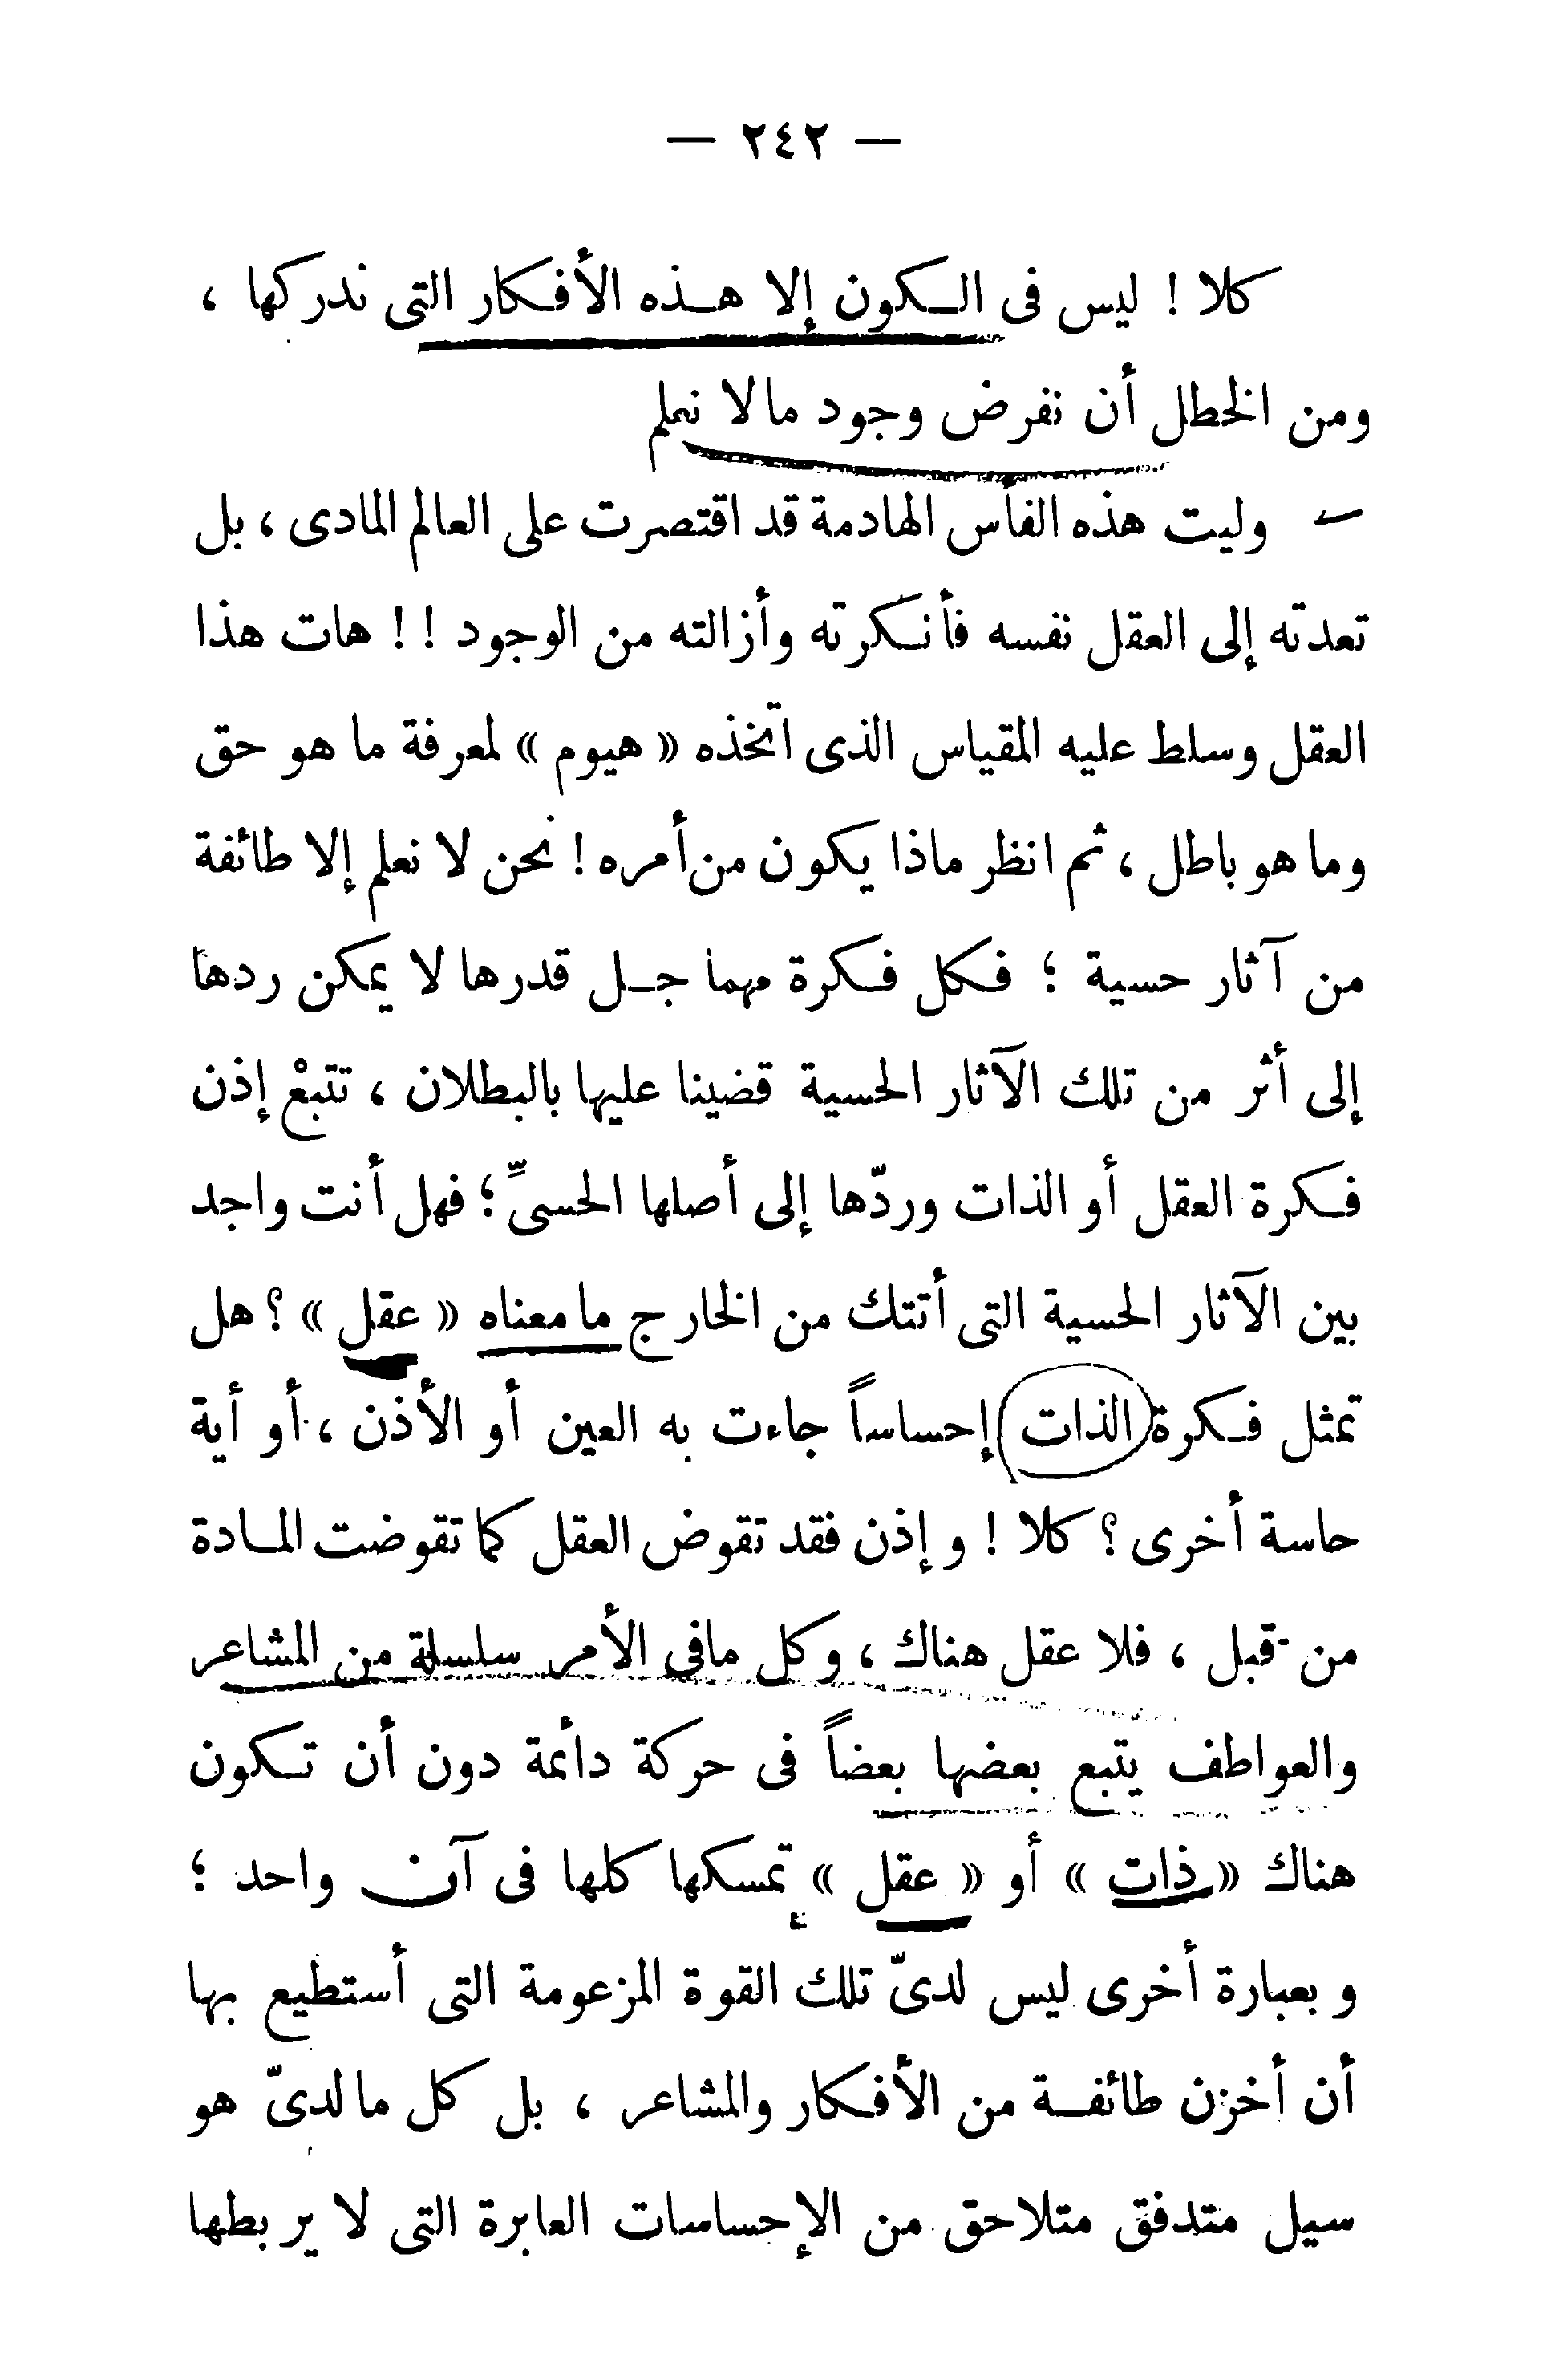 — ٢٤٢ —
كلا ! ليس فى الـكون إلا هـذه الأفـكار التى ندركها ،
ومن الخطل أن نفرض وجود مالا نعلم
وليت هذه الفأس الهادمة قد اقتصرت على العالم المادى ، بل
تعدته إلى العقل نفسه فأنـكرته وأزالته من الوجود ! ! هات هذا
العقل وسلط عليه المقياس الذى اتخذه « هيوم » لمعرفة ما هو حق
وما هو باطل ، ثم انظر ماذا يكون من أمره ! نحن لا نعلم إلا طائفة
من آثار حسية ؛ فـكل فـكرة مهما جـل قدرها لا يمكن ردها
إلى أثر من تلك الآثار الحسية قضينا عليها بالبطلان ، تتبعْ إذن
فـكرة العقل أو الذات وردّها إلى أصلها الحسىِّ ؛ فهل أنت واجد
بين الآثار الحسية التى أتتك من الخارج ما معناه « عقل » ؟ هل
تمثل فـكرة الذات إحساساً جاءت به العين أو الأذن ، أو أية
حاسة أخرى ؟ كلا ! و إذن فقد تقوض العقل كما تقوضت المـادة
من قبل ، فلا عقل هناك ، وكل مافى الأمر سلسلة من المشاعر
والعواطف يتبع بعضها بعضاً فى حركة دائمة دون أن تـكون
هناك « ذات » أو « عقل » تمسكها كلها فى آن واحد ؛
و بعبارة أخرى ليس لدىّ تلك القوة المزعومة التى أستطيع بها
أن أخزن طائفـة من الأفـكار والمشاعر ، بل كل مالدىّ هو
سيل متدفق متلاحق من الإحساسات العابرة التى لا يربطها